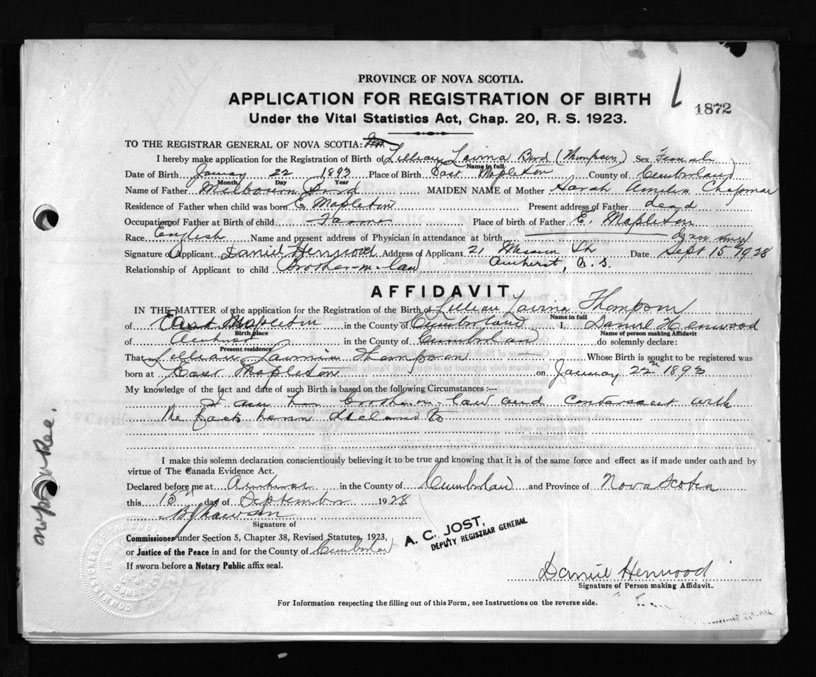 PROVINCE OF NOVA SCOTIA.
APPLICATION FOR REGISTRATION OF BIRTH
1872
Under the Vital Statistics Act, Chap. 20, R. S. 1923.
TO THE REGISTRAR GENERAL OF NOVA SCOTIA:
I hereby make application for the Registration of Birth of Lillian Lavina Bird (Thompson) Sex Female
Name in full
Date of Birth January 22 1893 Place of Birth East Mapleton County of Cumberland
Month Day Year
Name of Father Bird MAIDEN NAME of Mother Sarah Amelia Chapman
Residence of Father when child was born E. Mapleton Present address of Father dead
Occupation of Father at Birth of child Farmer Place of birth of Father E. Mapleton
Race English Name and present address of Physician in attendance at birth
Signature of Applicant Daniel Henwood Address of Applicant 21 St Date Sept 15 1928
Relationship of Applicant to child Brother-in-law Amherst, N.S.
AFFIDAVIT
IN THE MATTER of the application for the Registration of the Birth of Lillian Lavina Thompson
Name in full
of East Mapleton in the County of Cumberland I, Daniel Henwood
Birth place Name of person making Affidavit
of Amherst in the County of Cumberland do solemnly declare:
Present residency
That Lillian Lavinia Thompson Whose Birth is sought to be registered was
born at East Mapleton on January 22nd 1893
My knowledge of the fact and date of such Birth is based on the following Circumstances:—
I am her brother-in-law and conversant with
the facts herein declared to
I make this solemn declaration conscientiously believing it to be true and knowing that it is of the same force and effect as if made under oath and by
virtue of The Canada Evidence Act.
Declared before me at Amherst in the County of Cumberland and Province of Nova Scotia
this 15th day of September 1928
Signature of
Commissioner under Section 5, Chapter 38, Revised Statutes, 1923,
or Justice of the Peace in and for the County of Cumberland
If sworn before a Notary Public affix seal.
A. C. JOST,
DEPUTY REGISTRAR GENERAL
Daniel Henwood
Signature of Person making Affidavit.
For Information respecting the filling out of this Form, see Instructions on the reverse side.